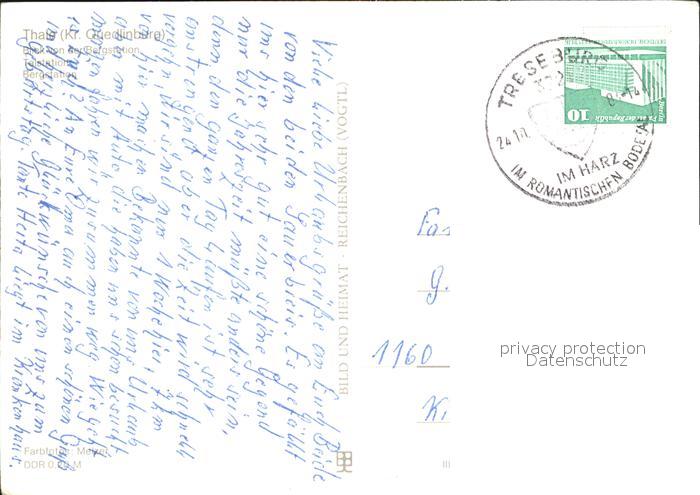 Thale (Kr. Quedlinburg)
Blick von der Bergstation
Talstation
Bergstation
Viele liebe Urlaubsgrüße an Euch Beide
von den beiden Sauerbeis. Es gefällt
uns hier sehr gut eine schöne Gegend
nur die Jahreszeit müßte anders sein,
denn den ganzen Tag laufen ist sehr
anstrengend aber die Zeit wird schnell
vergehn, wir sind nur 1 Woche hier. Zbm
hier machen Bekannte von uns Urlaub
die mit Auto die haben uns schon besucht
fahren wir zusammen weg. Wie geht
An Eure Oma auch einen schönen Gruß
liche Glückwünsche von uns zum
Geburtstag. Tante Herta liegt im Krankenhaus.
Farbfotos: Melzer
DDR 0,20 M
BILD UND HEIMAT · REICHENBACH (VOGTL)
III
TRESEBURG
24.10
IM HARZ
IM ROMANTISCHEN BODETAL
DEUTSCHE DEMOKRATISCHE REPUBLIK
10
Berlin Palast der Republik
G.
1160
K
privacy protection
Datenschutz